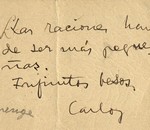 ¡Las raciones han
de ser más peque-
ñas.
Infinitos besos,
Carlos